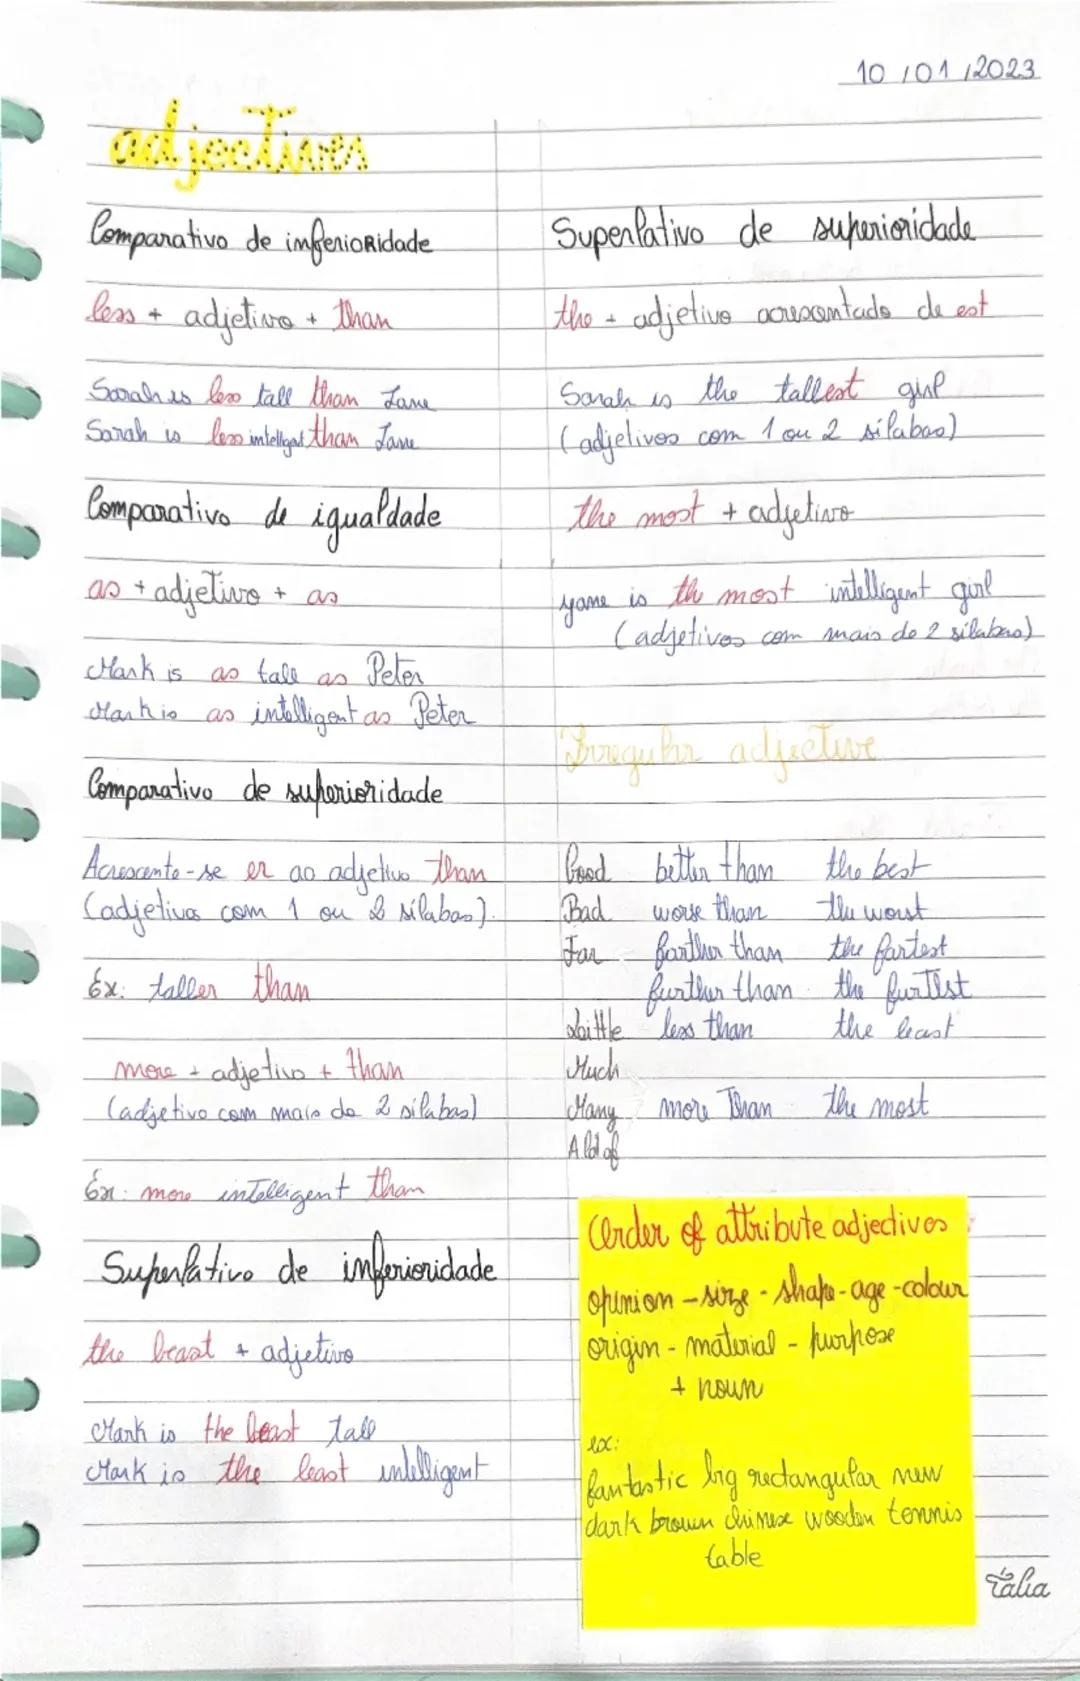 10/01/2023
adjectives
Comparativo de inferioridade
less + adjetivo + than
Sarah is less tall than Jane
Sarah is less intelligent than Jane
Comparativo de igualdade
as + adjetivo + as
Mark is as tall as Peter
Mark is as intelligent as Peter
Comparativo de superioridade
Acrescenta-se er ao adjetivo than
(adjetivos com 1 ou 2 sílabas).
Ex: taller than
more + adjetivo + than
(adjetivo com mais de 2 sílabas)
Ex: more intelligent than
Superlativo de inferioridade
the least + adjetivo
Mark is the least tall
Mark is the least intelligent
Superlativo de superioridade
the + adjetivo acrescentado de est
Sarah is the tallest girl
(adjetivos com 1 ou 2 sílabas)
the most + adjetivo
yane is the most intelligent girl
(adjetivos com mais de 2 sílabas)
Irregular adjective
Good better than the best
Bad worse than the worst
Far farther than the fartest
further than the furtest
Little less than the least
Much
Many more than the most
A lot of
Order of attribute adjectives
opinion - size - shape - age - colour
origin - material - purpose
+ noun
ex:
fantastic big rectangular new
dark brown chinese wooden tennis
table
Tália